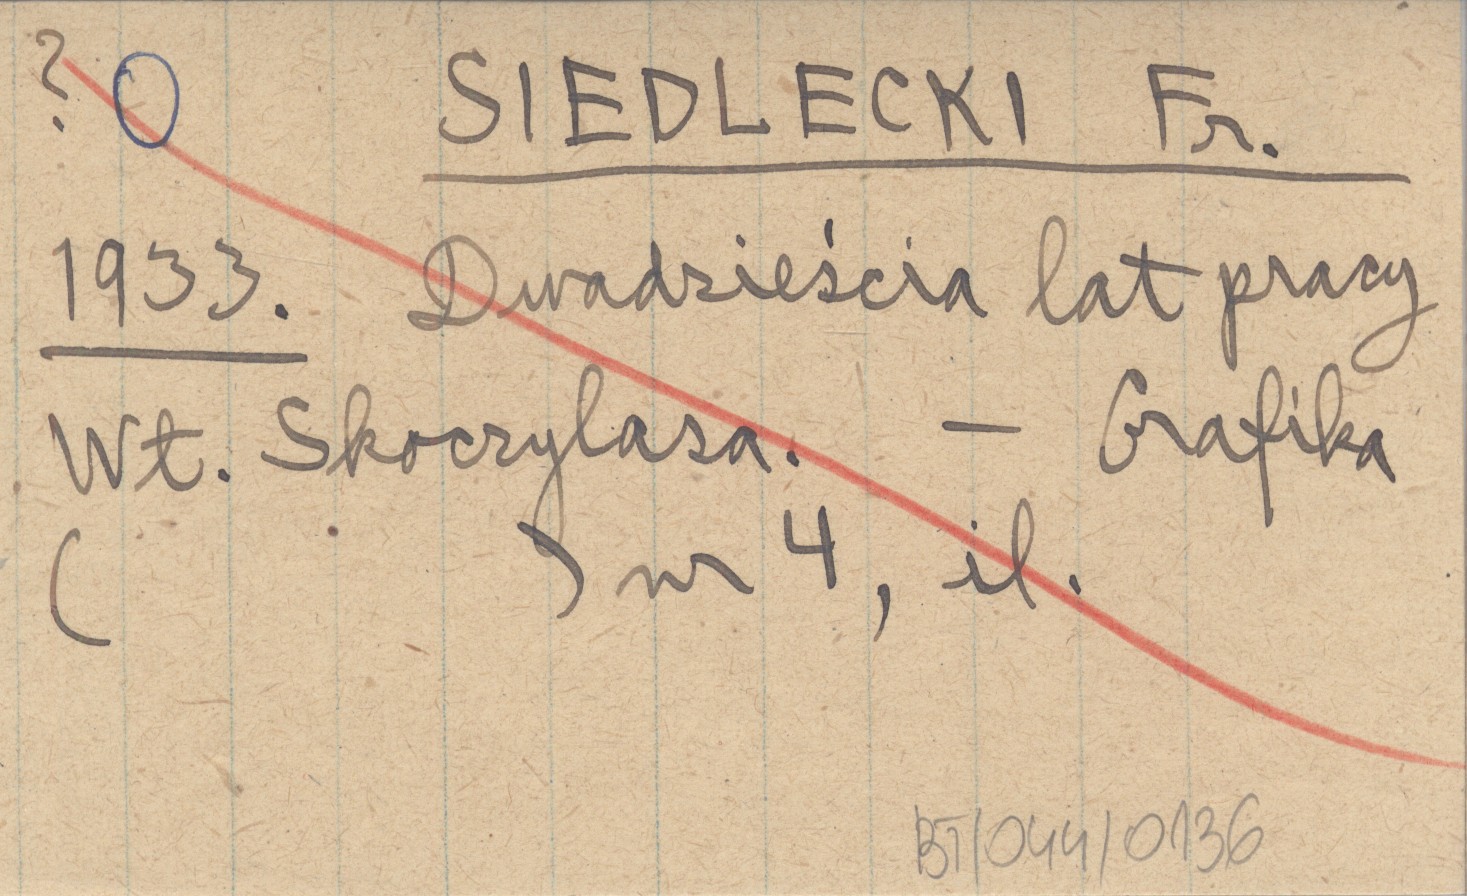 ? SIEDLECKI Fr.
1933. Dwadzieścia lat pracy
Wł. Skoczylasa. — Grafika
( ) nr 4, il.
BT/044/0136